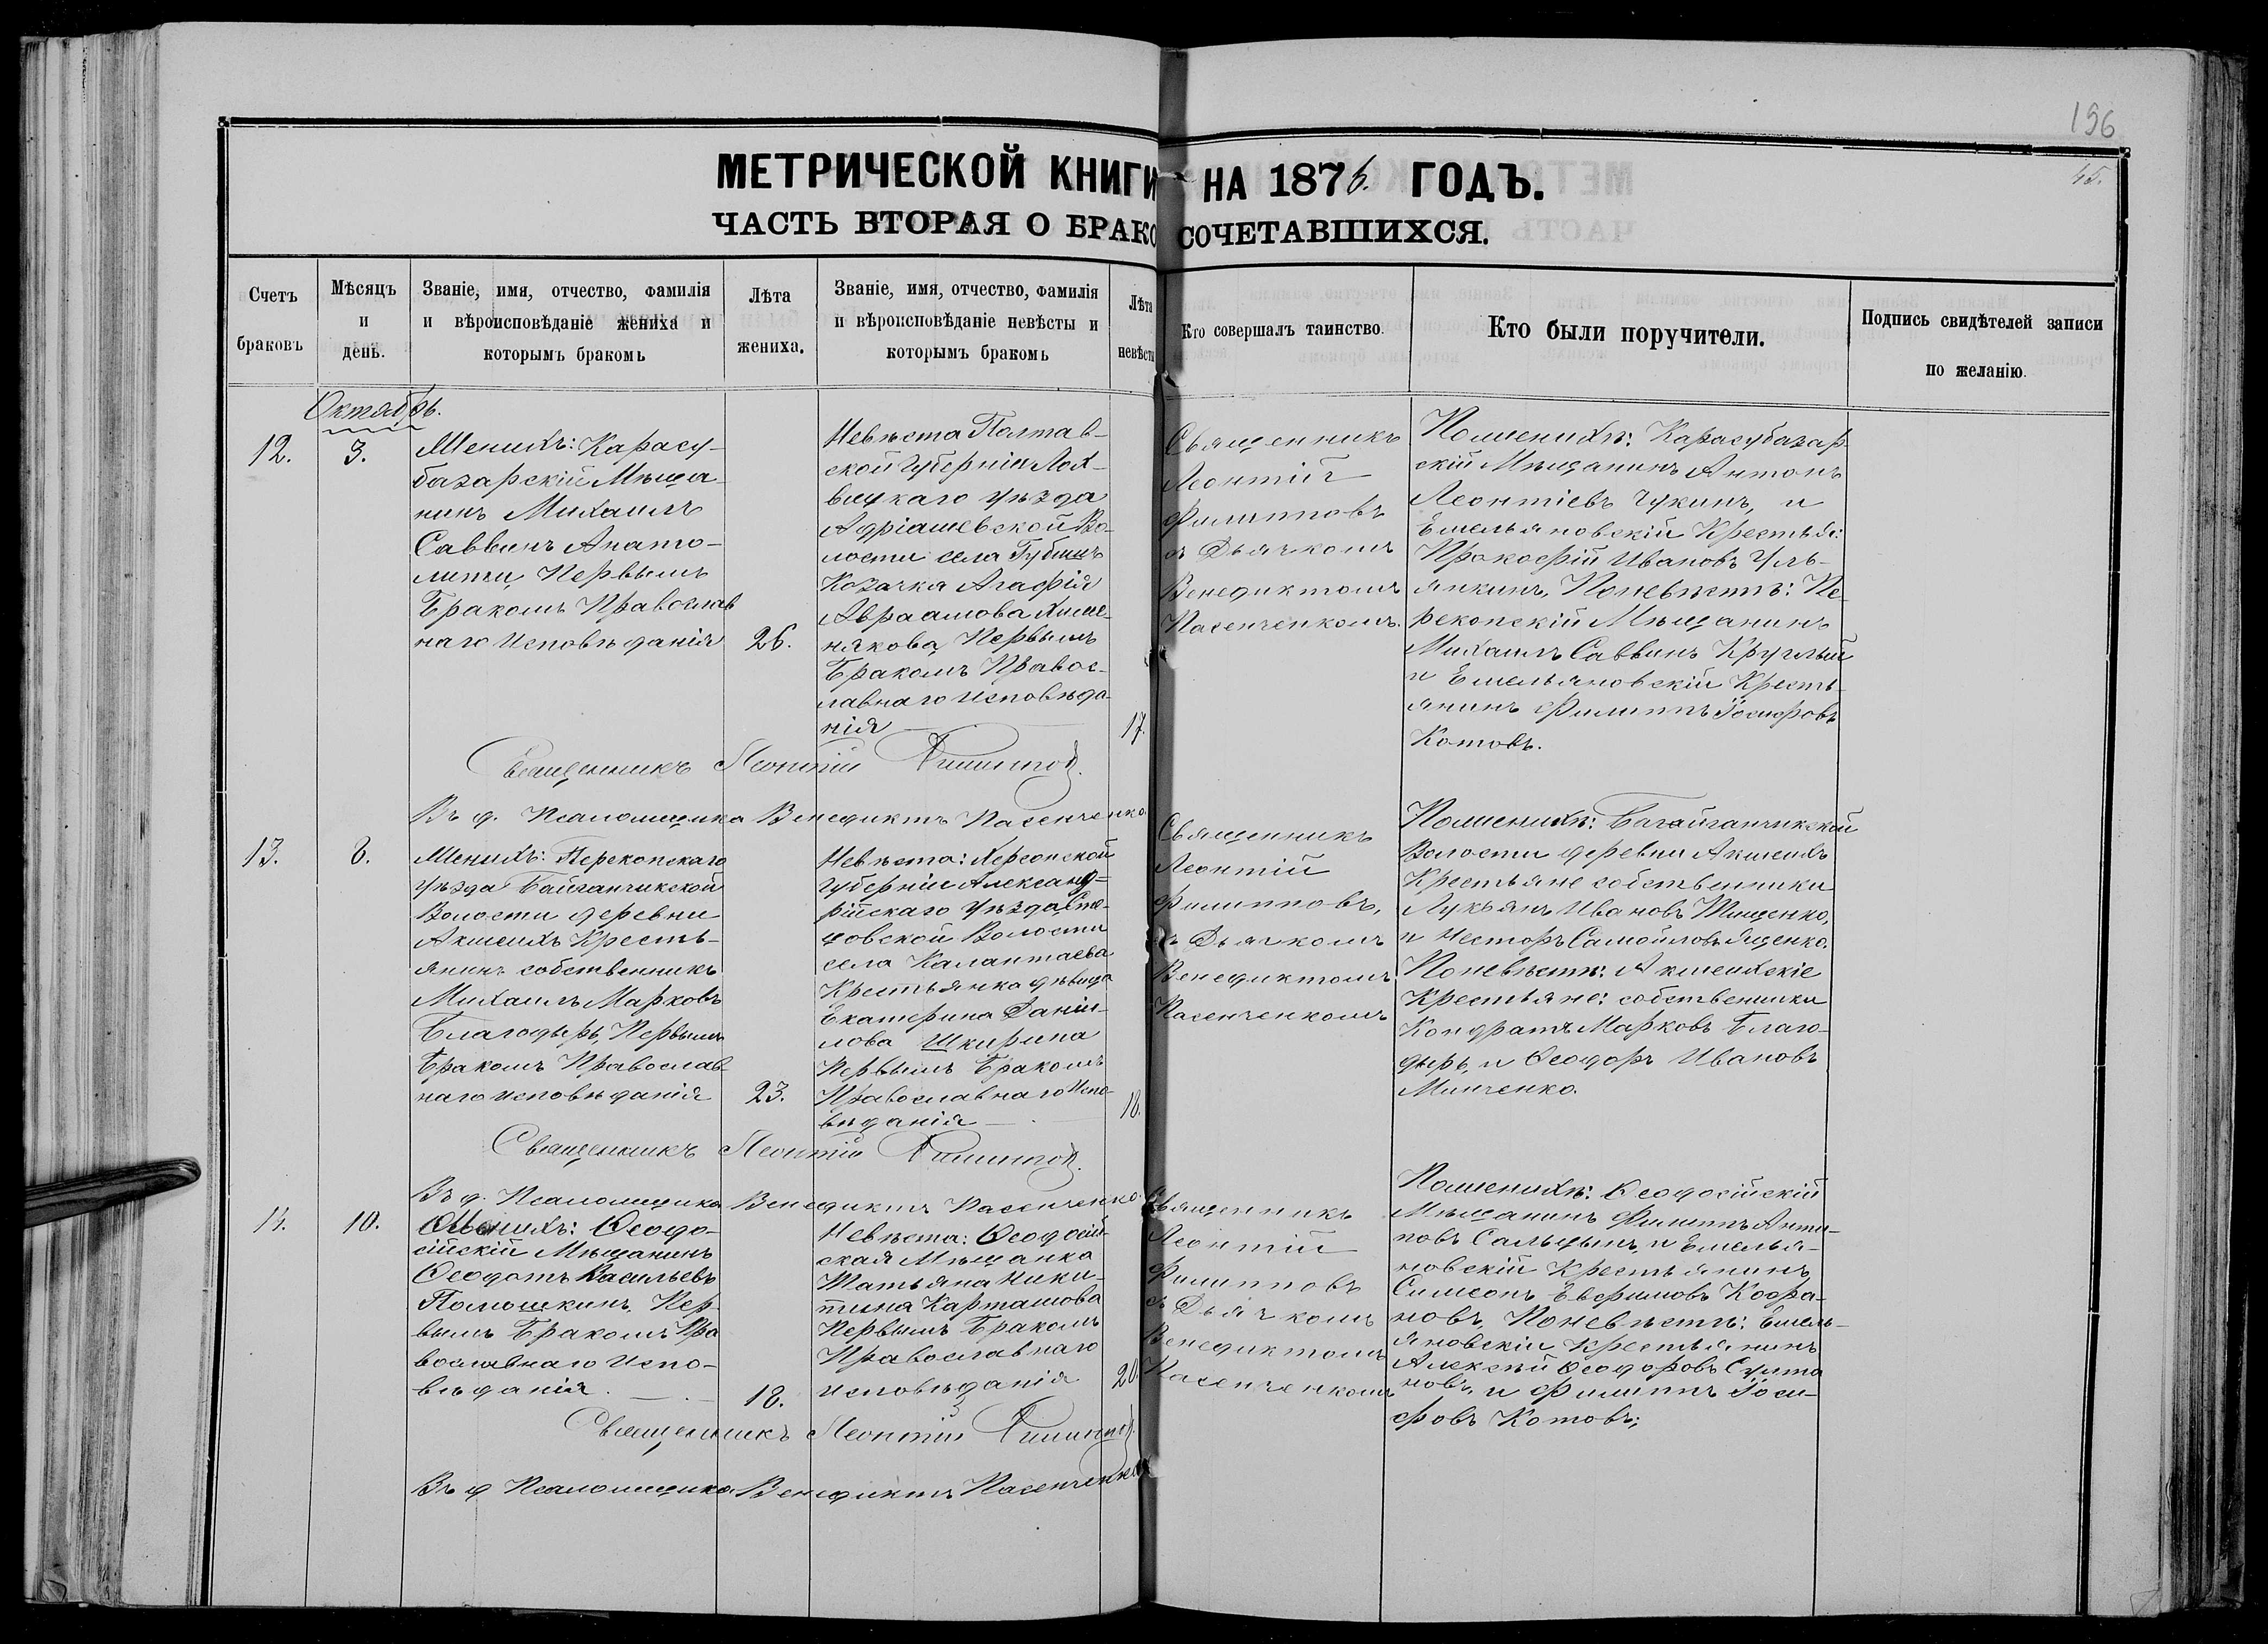 196
45.
МЕТРИЧЕСКОЙ КНИГИ НА 1876. ГОДЪ.
ЧАСТЬ ВТОРАЯ О БРАКОСОЧЕТАВШИХСЯ.
Счетъ браковъ
Мѣсяцъ и день.
Званіе, имя, отчество, фамилія
и вѣроисповѣданіе жениха и
которымъ бракомъ
Лѣта
жениха.
Званіе, имя, отчество, фамилія
и вѣроисповѣданіе невѣсты и
которымъ бракомъ
Лѣта
невѣсты
Кто совершалъ таинство.
Кто были поручители.
Подпись свидѣтелей записи
по желанію.
Октябрь.
12.
3.
Женихъ: Карасу-
базарскій Мѣща-
нинъ Михаилъ
Саввинъ
Первымъ
Бракомъ Православ
наго Исповѣданія
26.
Невѣста Полтав-
ской Губерніи Лох-
вицкаго уѣзда
Во-
лости села
Козачка Агафія
Авраамова
Первымъ
Бракомъ Правос-
лавнаго Исповѣда-
нія
17.
Священникъ
Леонтій
Филипповъ
съ Дьячкомъ
Венедиктомъ
Пасенченкомъ.
Поженихѣ: Карасубазар
скій Мѣщанинъ Антонъ
Леонтіевъ Чукинъ, и
Емельяновскій Крестья:
Прокофій Ивановъ Уль-
янкинъ, Поневѣстѣ: Пе-
рекопскій Мѣщанинъ
Михаилъ Саввинъ Круглый
и Емельяновскій Кресть-
янинъ Филиппъ Іосифовъ
Котовъ.
Священникъ Леонтій Филиппов.
Въ д. Псаломщика Венедиктъ Пасенченко
13.
8.
Женихъ: Перекопскаго
уѣзда Байганчикской
Волости деревни
Акшеихъ Кресть-
янинъ собственникъ
Михаилъ Марковъ
Благодырь, Первымъ
Бракомъ Православ
наго исповѣданія
23.
Невѣста: Херсонской
Губерніи Александ=
рійскаго уѣзда Сте-
цовской Волости
села Калантаева
Крестьянка дѣвица
Екатерина Даніи-
лова Шкирина
Первымъ Бракомъ
Православнаго Испо-
вѣданія
18.
Священникъ
Леонтій
Филипповъ,
съ Дьячкомъ
Венедиктомъ
Пасенченкомъ
Поженихѣ: Багайганчикской
Волости деревни Акшеихъ
Крестьяне собственники
Лукьянъ Ивановъ Тищенко,
и Несторъ Самойловъ Яценко.
Поневѣстѣ: Акшеихскіе
Крестьяне: собственники
Кондратъ Марковъ Благо-
дырь, и Ѳеодоръ Ивановъ
Минченко.
Священникъ Леонтій Филиппов.
Въ д. Псаломщика Венедиктъ Пасенченко.
14.
10.
Женихъ: Ѳеодо-
сійскій Мѣщанинъ
Ѳеодотъ Васильевъ
Пер-
вымъ Бракомъ Пра
вославнаго Испо-
вѣданія.
18.
Невѣста: Ѳеодосій-
ская Мѣщанка
Татьяна Ники-
тина Карташова
Первымъ Бракомъ
Православнаго
исповѣданія
20.
Священникъ
Леонтій
Филипповъ
съ Дьячкомъ
Венедиктомъ
Пасенченкомъ
Поженихѣ: Ѳеодосійскій
Мѣщанинъ Филиппъ Анти-
повъ Сальцынъ, и Емелья-
новскій Крестьянинъ
Симеонъ Евфимовъ Кофа-
новъ, Поневѣстѣ: Емель-
яновскіи Крестьянинъ
Алексѣй Ѳеодоровъ Султа
новъ, и Филиппъ Іоси-
фовъ Котовъ;
Священникъ Леонтій Филиппов.
Въ д Псаломщика Венедиктъ Пасенченко